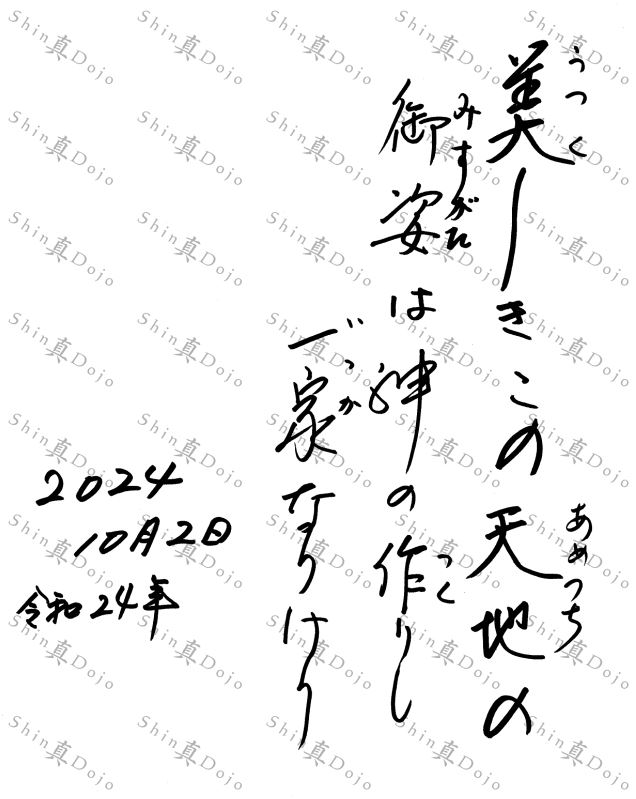 うつく あめつち
美しきこの天地の
みすがた つく
御姿は神の作りし
いっか
一家なりけり
2024
10月2日
令和24年
Shin真Dojo